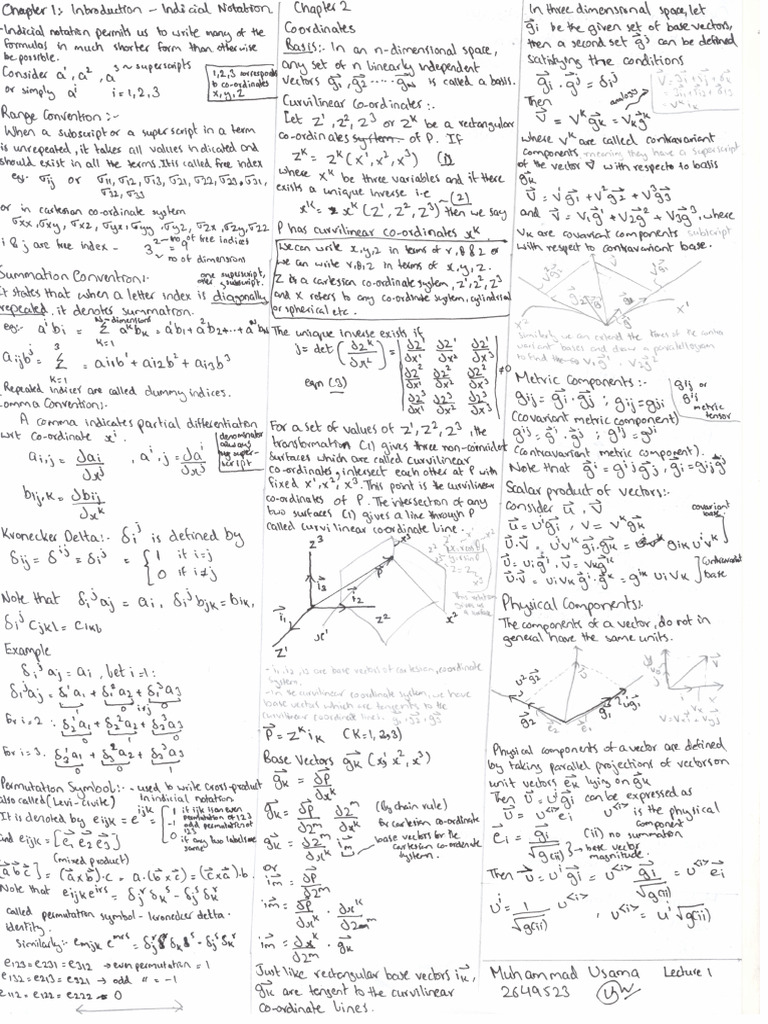 Chapter 1: Introduction - Indicial Notation
-Indicial notation permits us to write many of the
formulas in much shorter form than otherwise
be possible.
Consider a¹, a², a³ ~ superscripts
or simply aⁱ i=1,2,3
1,2,3 corresponds
to co-ordinates
x,y,z
Range Convention :-
When a subscript or a superscript in a term
is unrepeated, it takes all values indicated and
should exist in all the terms. It is called free index
eg:- σij or σ11, σ12, σ13, σ21, σ22, σ23, σ31,
σ32, σ33
or in cartesian co-ordinate system
σxx, σxy, σxz, σyx, σyy, σyz, σzx, σzy, σzz
i & j are free index - 3² = 9
no of free indices
no of dimensions
Summation Convention:-
one superscript,
other subscript.
it states that when a letter index is diagonally
repeated, it denotes summation.
N→dimensions
eg:- aⁱbi = Σ aᵏbk = a¹b1 + a²b2 +...+ aᴺbN
k=1
aijbʲ = Σ = ai1b¹ + ai2b² + ai3b³
k=1
Repeated indices are called dummy indices.
Comma Convention:-
A comma indicates partial differentiation
wrt co-ordinate xⁱ.
ai,j = ∂ai/∂xʲ , aⁱ,j = ∂aⁱ/∂xʲ
denominator
always
superscript
bij,k = ∂bij/∂xᵏ
Kronecker Delta:- δiʲ is defined by
δij = δⁱʲ = δiʲ = { 1 if i=j
0 if i≠j
Note that δiʲaj = ai, δiʲbjk = bik,
δiʲcjkl = cikl
Example
δiʲaj = ai, Let i=1:
δiʲaj = δ1¹a1 + δ1²a2 + δ1³a3
For i=2: δ2¹a1 + δ2²a2 + δ2³a3
0 1 0
For i=3. δ3¹a1 + δ3²a2 + δ3³a3
0 0 1
Permutation Symbol:- - used to write cross-product
in indicial notation
also called (Levi-civite)
It is denoted by eijk = eⁱʲᵏ { 1 if ijk is an even permutation of 123
-1 odd permutation of 123
0 if any two labels are same
and eijk = [e⃗1 e⃗2 e⃗3]
(mixed product)
[a⃗ b⃗ c⃗] = (a⃗xb⃗).c = a.(b⃗xc⃗) = (c⃗xa⃗).b
Note that eijk eⁱʳˢ = δjʳδkˢ - δjˢδkʳ
called permutation symbol - kronecker delta.
Identity.
Similarly:- emjk eᵐʳˢ = δjʳδkˢ - δjˢδkʳ
e123 = e231 = e312 → even permutation = 1
e132 = e213 = e321 → odd " = -1
e112 = e122 = e222 = 0
Chapter 2
Coordinates
Basis:- In an n-dimensional space,
any set of n linearly independent
vectors g⃗1, g⃗2 ..... g⃗n is called a basis.
Curvilinear Co-ordinates:-
Let Z¹, Z², Z³ or Zᵏ be a rectangular
co-ordinates system of P. If
Zᵏ = Zᵏ(x¹, x², x³) (1)
where xᵏ be three variables and if there
exists a unique inverse i.e
xᵏ = xᵏ(Z¹, Z², Z³) (2) then we say
P has curvilinear co-ordinates xᵏ
We can write x,y,z in terms of r,θ & z or
we can write r,θ,z in terms of x,y,z.
Z is a cartesian co-ordinate system, Z¹, Z², Z³
and x refers to any co-ordinate system, cylindrical
or spherical etc.
The unique inverse exists if
J = det (∂Zᵏ/∂xˡ) = | ∂Z¹/∂x¹ ∂Z¹/∂x² ∂Z¹/∂x³ |
| ∂Z²/∂x¹ ∂Z²/∂x² ∂Z²/∂x³ | ≠0
eqn (3)
| ∂Z³/∂x¹ ∂Z³/∂x² ∂Z³/∂x³ |
For a set of values of Z¹, Z², Z³, the
transformation (1) gives three non-coincident
surfaces which are called curvilinear
co-ordinates, intersect each other at P with
fixed x¹, x², x³. This point is the curvilinear
co-ordinates of P. The intersection of any
two surfaces (1) gives a line through P
called curvilinear coordinate line.
Z³
x³
P
i⃗3
i⃗2
i⃗1
x¹
Z²
x²
Z¹
- i1, i2, i3 are base vectors of cartesian coordinate
system.
- In the curvilinear coordinate system, we have
base vector which are tangents to the
curvilinear coordinate lines. g⃗1 g⃗2 g⃗3
P⃗ = Zᵏ ik (k=1,2,3)
Base Vectors g⃗k (x¹, x², x³)
g⃗k = ∂P⃗/∂xᵏ
g⃗k = ∂P⃗/∂Zᵐ ∂Zᵐ/∂xᵏ (By chain rule)
g⃗k = ∂Zᵐ/∂xᵏ i⃗m
For cartesian coordinate
base vectors for the
cartesian co-ordinate
system.
or
i⃗m = ∂P⃗/∂Zᵐ
i⃗m = ∂P⃗/∂xᵏ · ∂xᵏ/∂Zᵐ
i⃗m = ∂xᵏ/∂Zᵐ · g⃗k
Just like rectangular base vectors i⃗k,
g⃗k are tangent to the curvilinear
co-ordinate lines.
In three dimensional space, let
g⃗i be the given set of base vectors,
then a second set g⃗ʲ can be defined
satisfying the conditions
g⃗i · g⃗ʲ = δiʲ
Then
V⃗ = Vᵏg⃗k = Vkg⃗ᵏ
analogy
where Vᵏ are called contravariant
components meaning they have a superscript
of the vector V⃗ with respect to basis
g⃗k
V⃗ = V¹g⃗1 + V²g⃗2 + V³g⃗3
and V⃗ = V1g⃗¹ + V2g⃗² + V3g⃗³, where
Vk are covariant components subscript
with respect to contravariant base.
x²
x¹
Similarly we can extend the lines of the contra
variant basis and draw a parallelogram
to find the V1g⃗¹ V2g⃗²
Metric Components:-
gij = g⃗i · g⃗j ; gij = gji
(covariant metric component)
gⁱʲ = g⃗ⁱ · g⃗ʲ ; gⁱʲ = gʲⁱ
(contravariant metric component).
gij or
gⁱʲ
metric
tensor
Note that g⃗ⁱ = gⁱʲg⃗j, g⃗i = gijg⃗ʲ
Scalar product of vectors:-
Consider u⃗, v⃗
u⃗ = uⁱg⃗i, v = vᵏg⃗k
u⃗·v⃗ = uⁱvᵏg⃗i·g⃗k = gik uⁱvᵏ
covariant
base
u⃗ = uig⃗ⁱ, v⃗ = vkg⃗ᵏ
u⃗·v⃗ = uivk g⃗ⁱ·g⃗ᵏ = gⁱᵏ uivk
contravariant
base
Physical Components:-
The components of a vector, do not in
general have the same units.
u²g⃗2
u⃗
u¹g⃗1
g⃗2
g⃗1
e⃗1
j
v⃗
i
Physical components of a vector are defined
by taking parallel projections of vectors on
unit vectors e⃗k lying on g⃗k
Then u⃗ = uⁱg⃗i can be expressed as
u⃗ = u<i> e⃗i
u<i> is the physical
component
e⃗i = g⃗i/√g(ii)
(ii) no summation
→ base vector
magnitude.
Then → u⃗ = uⁱg⃗i = u<i> g⃗i/√g(ii) = u<i> e⃗i
uⁱ = 1/√g(ii) u<i> , u<i> = uⁱ√g(ii)
Muhammad Usama Lecture 1
2649523